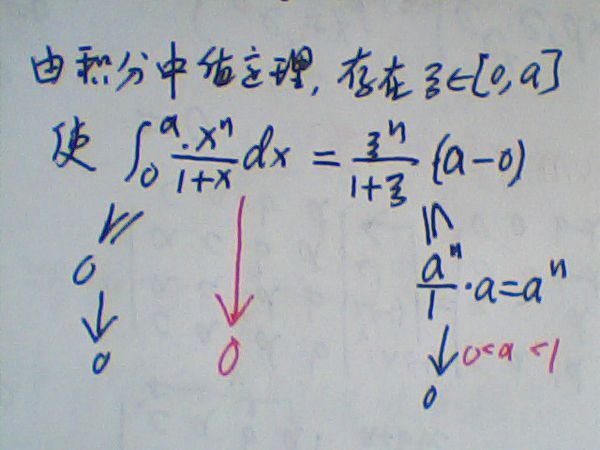 由积分中值定理,存在ξ∈[0,a]
使 ∫₀ᵃ xⁿ/(1+x) dx = ξⁿ/(1+ξ) (a-0)
≥ ≤
0 aⁿ/1 · a = aⁿ
↓ ↓ ↓ 0<a<1
0 0 0